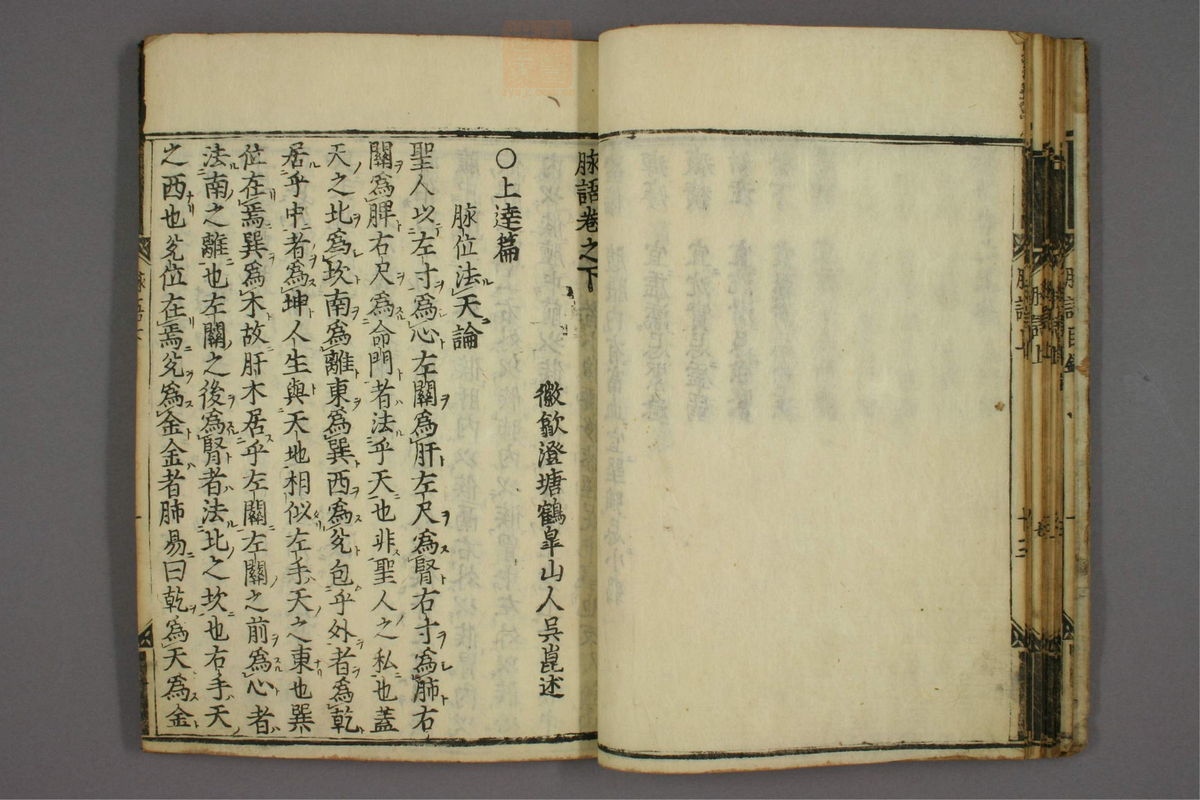 脉語卷之下
徽歙澄塘鶴皐山人吳崑述
○上達篇
脉位法天論
聖人以左寸爲心左關爲肝左尺爲腎右寸爲肺右
關爲脾右尺爲命門者法乎天也非聖人之私也蓋
天之北爲坎南爲離東爲巽西爲兊包乎外者爲乾
居乎中者爲坤人生與天地相似左手天之東也巽
位在焉巽爲木故肝木居乎左關左關之前爲心者
法南之離也左關之後爲腎者法北之坎也右手天
之西也兊位在焉兊爲金金者肺易曰乾爲天爲金